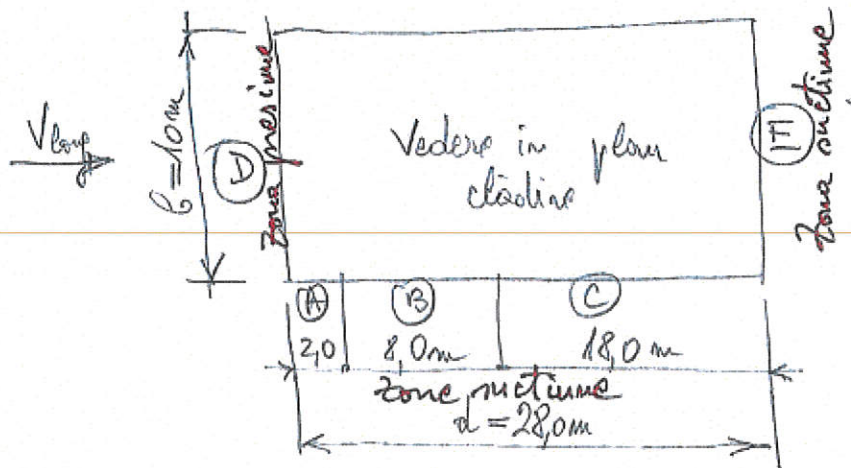 V long
b = 10m
D
zona presiune
Vedere in plan
clădire
E
zona suctiune
A
B
C
2,0
8,0m
18,0 m
zone suctiune
d = 28,0m